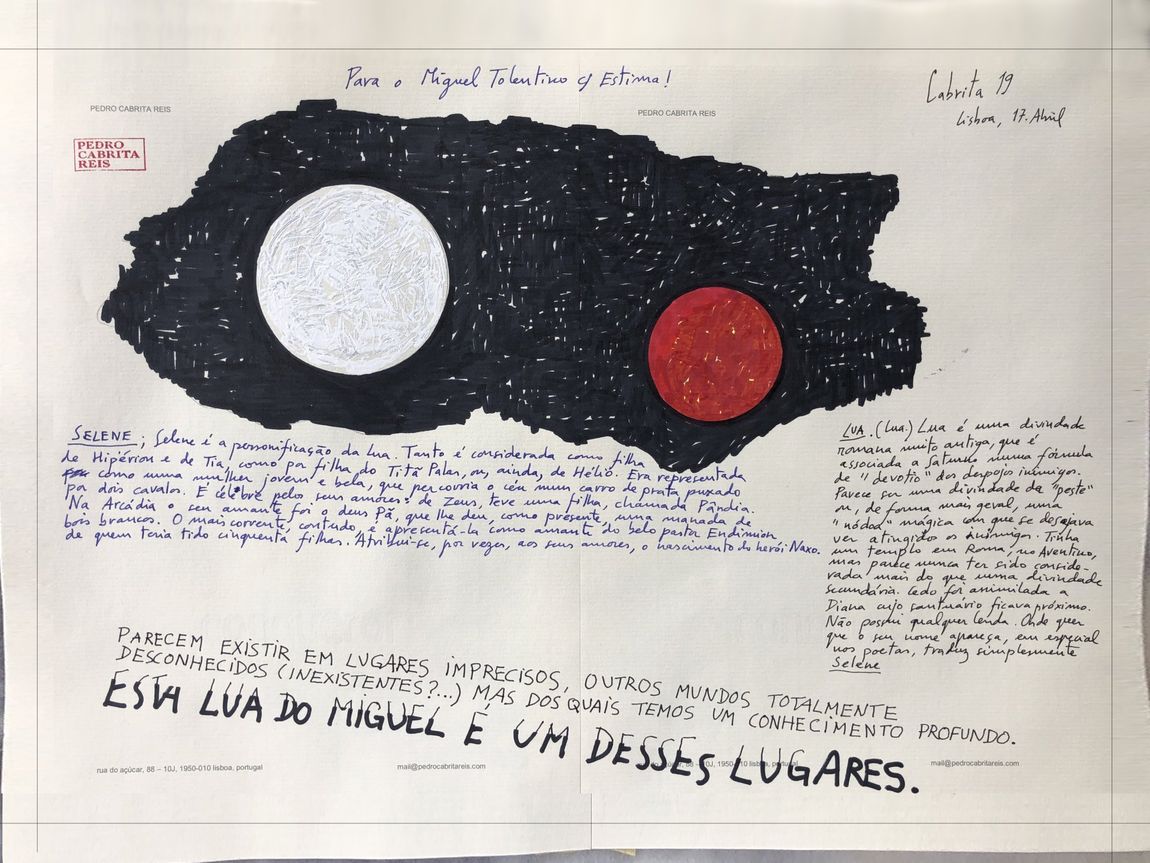 Para o Miguel Tolentino c/ Estima!
Cabrita 19
Lisboa, 17. Abril
PEDRO CABRITA REIS
PEDRO CABRITA REIS
PEDRO
CABRITA
REIS
SELENE; Selene é a personificação da lua. Tanto é considerada como filha
de Hipérion e de Tia, como por filha do Titã Palas, ou, ainda, de Hélio. Era representada
como uma mulher jovem e bela, que percorria o céu num carro de prata puxado
por dois cavalos. É célebre pelos seus amores: de Zeus, teve uma filha, chamada Pândia.
Na Arcádia o seu amante foi o deus Pã, que lhe deu, como presente, uma manada de
bois brancos. O mais corrente, contudo, é apresentá-la como amante do belo pastor Endimion,
de quem teria tido cinquenta filhas. Atribui-se, por vezes, aos seus amores, o nascimento do herói Naxo.
LUA. (Lua.) Lua é uma divindade
romana muito antiga, que é
associada a Saturno numa fórmula
de "devotio" dos despojos inimigos.
Parece ser uma divindade da "peste"
ou, de forma mais geral, uma
"nódoa" mágica com que se desejava
ver atingidos os inimigos. Tinha
um templo em Roma, no Aventino,
mas parece nunca ter sido conside-
rada mais do que uma divindade
secundária. Cedo foi assimilada a
Diana cujo santuário ficava próximo.
Não possui qualquer lenda. Onde quer
que o seu nome apareça, em especial
nos poetas, traduz simplesmente
Selene
PARECEM EXISTIR EM LUGARES IMPRECISOS, OUTROS MUNDOS TOTALMENTE
DESCONHECIDOS (INEXISTENTES?...) MAS DOS QUAIS TEMOS UM CONHECIMENTO PROFUNDO.
ESTA LUA DO MIGUEL É UM DESSES LUGARES.
rua do açúcar, 88 – 10J, 1950-010 lisboa, portugal
mail@pedrocabritareis.com
lisboa, portugal
mail@pedrocabritareis.com